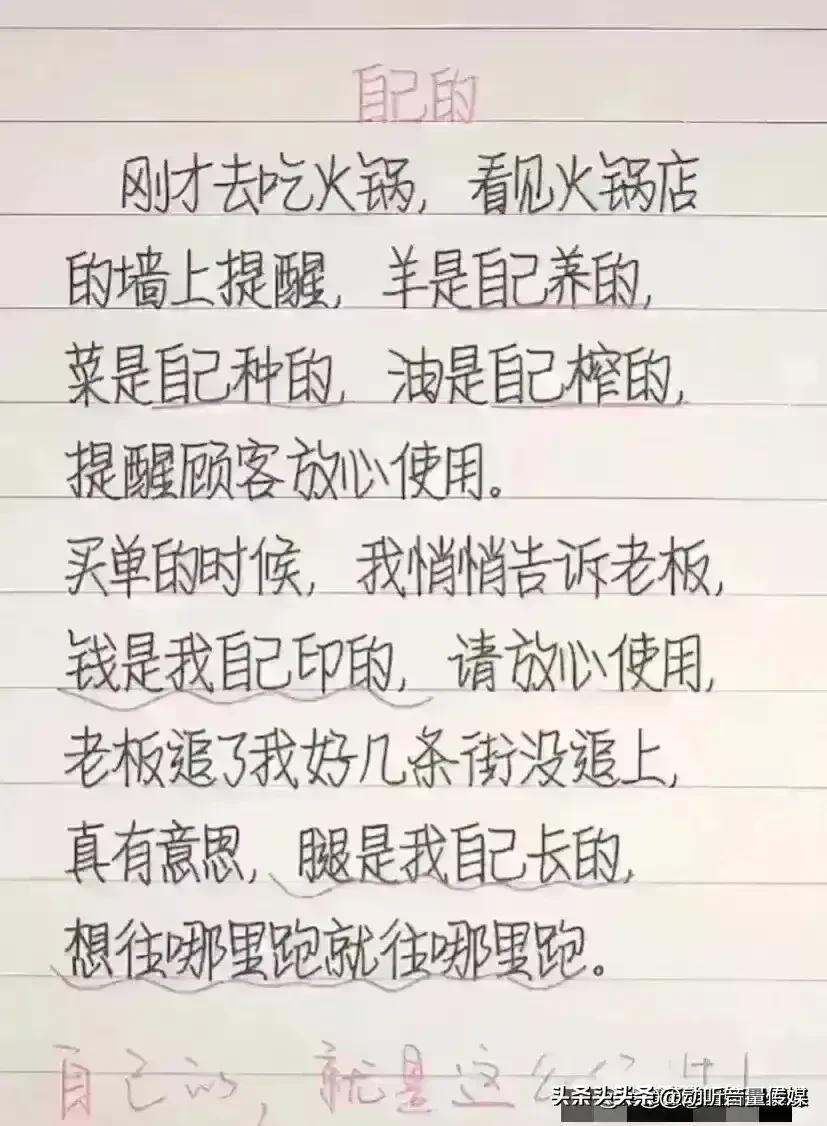 自己的
刚才去吃火锅，看见火锅店
的墙上提醒，羊是自己养的，
菜是自己种的，油是自己榨的，
提醒顾客放心使用。
买单的时候，我悄悄告诉老板，
钱是我自己印的，请放心使用，
老板追了我好几条街没追上，
真有意思，腿是我自己长的，
想往哪里跑就往哪里跑。
自己的，就是这么
头条 @动听音量传媒